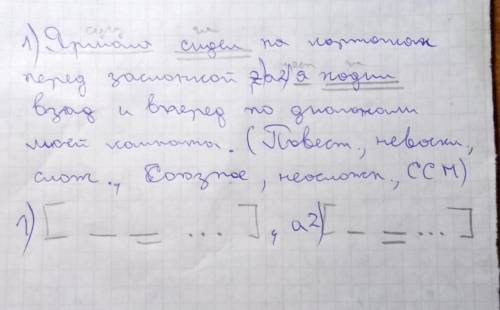 сущ гл
1) Ярмола сидел на корточках
мест гл
перед заслонкой, а 2) я ходил
взад и вперед по диагонали
моей комнаты. (Повест., невоскл.,
слож., Союзное, неосложн., ССП)
1) [ _ = ... ], а 2) [ _ = ... ]